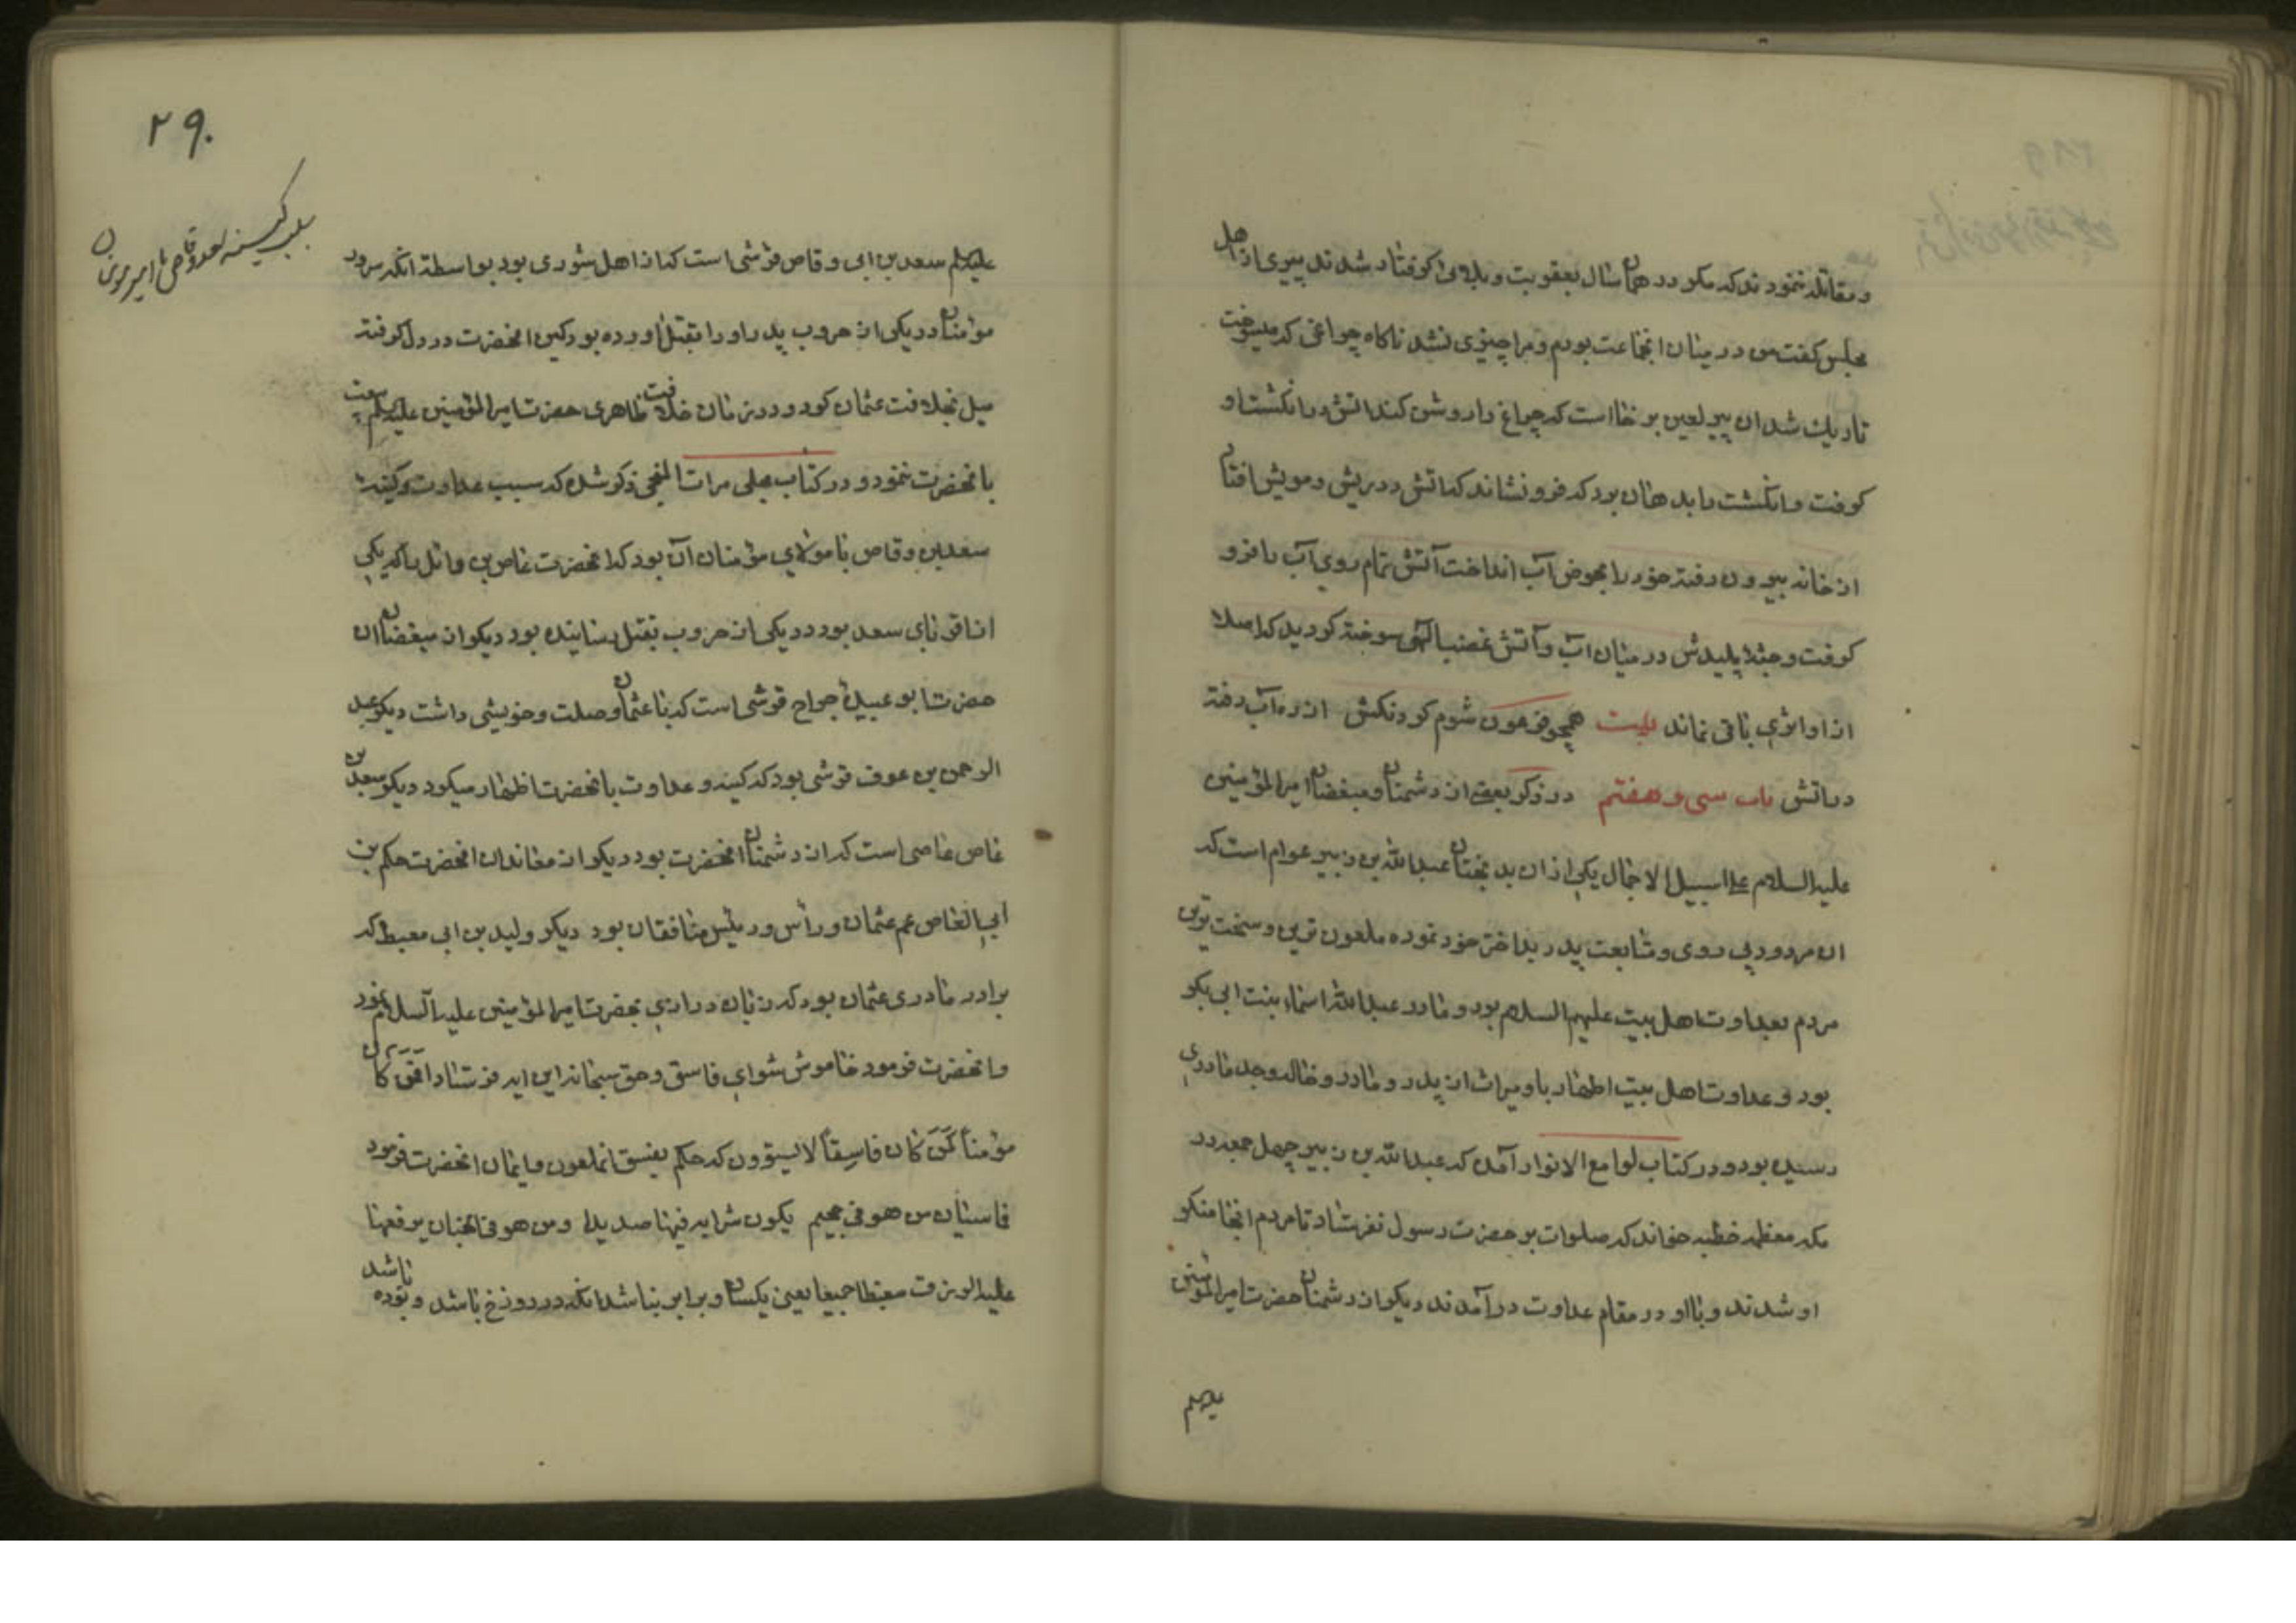 و مقاتله ننمودند که مکر در همان سال بعقوبت و بلائی کرفتار شدند پیری از اهل
مجلس کفت من در میان انجماعت بودم و مرا چیزی نشد ناکاه چراغی که میسوخت
تاریک شد ان پیر لعین برخاست که چراغ را روشن کند اتش در انکشت او
کرفت و انکشت را بدهان برد که فرو نشاند که اتش در ریش و مویش افتاد
از خانه بیرون رفته خود را بحوض آب انداخت آتش تمام روی آب را فرو
کرفت و جثهٔ پلیدش در میان آب و آتش غضب الهی سوخته کردید که اصلا
از او اثری باقی نماند بیت همچو فرعون شوم کردنکش از ره آب رفته
در اتش باب سی و هفتم در ذکر بعضی از دشمنان و مبغضان امیرالمؤمنین
علیه السلام علی سبیل الاجمال یکی از ان بدبختان عبدالله بن زبیر عوام است که
ان مردود پی روی و متابعت پدر بداختر خود نموده ملعون ترین و سخت ترین
مردم بعداوت اهل بیت علیهم السلام بود و مادر عبدالله اسماء بنت ابی بکر
بود و عداوت اهل بیت اطهار باو میراث از پدر و مادر و خاله و جد مادری
رسیده بود و در کتاب لوامع الانوار آمده که عبدالله بن زبیر چهل جمعه در
مکه معظمه خطبه خواند که صلوات بر حضرت رسول نفرستاد تا مردم انجا منکر
او شدند و با او در مقام عداوت درآمدند دیکر از دشمنان حضرت امیرالمؤمنین
علیه‌السلم
۲۹۰
سبب کینه سعد وقاص با امیرمومنان
علیه‌السلم سعد بن ابی وقاص قرشی است که از اهل شوری بود بواسطهٔ انکه سرور
مؤمنان در یکی از حروب پدر او را بقتل اورده بود کین انحضرت در دل کرفته
میل بخلافت عثمان کرد و در زمان خلافت ظاهری حضرت امیرالمؤمنین علیه‌السلم بیعت
بانحضرت ننمود و در کتاب مجلی مرات المنجی ذکر شده که سبب عداوت و کینهٔ
سعد بن وقاص با مولای مؤمنان آن بود که انحضرت عاص بن وائل را که یکی
از اقربای سعد بود در یکی از حروب بقتل رسانیده بود دیکر از مبغضان ان
حضرت ابو عبیدهٔ جراح قرشی است که با عثمان وصلت و خویشی داشت دیکر عبد
الرحمن بن عوف قرشی بود که کینه و عداوت بانحضرت اظهار میکرد دیکر سعد بن
عاص عاصی است که از دشمنان انحضرت بود دیکر از معاندان انحضرت حکم بن
ابی العاص عم عثمان و رأس و رئیس منافقان بود دیکر ولید بن ابی معیط که
برادر مادری عثمان بود که زبان درازی بحضرت امیرالمؤمنین علیه السلام نمود
و انحضرت فرمود خاموش شو ای فاسق و حق سبحانه این ایه فرستاد اَفَمَن کَانَ
مؤمناً کَمَن کَانَ فاسِقاً لا یستوون که حکم بفسق انملعون و ایمان انحضرت فرمود
فاستان من هو فی جحیم یکون شرابه فیها صدیدا و من هو فی الجنان یرفعها
علیه الورق معبطا جمیعا یعنی یکسان و برابر نباشد انکه در دوزخ باشد و بوده باشد